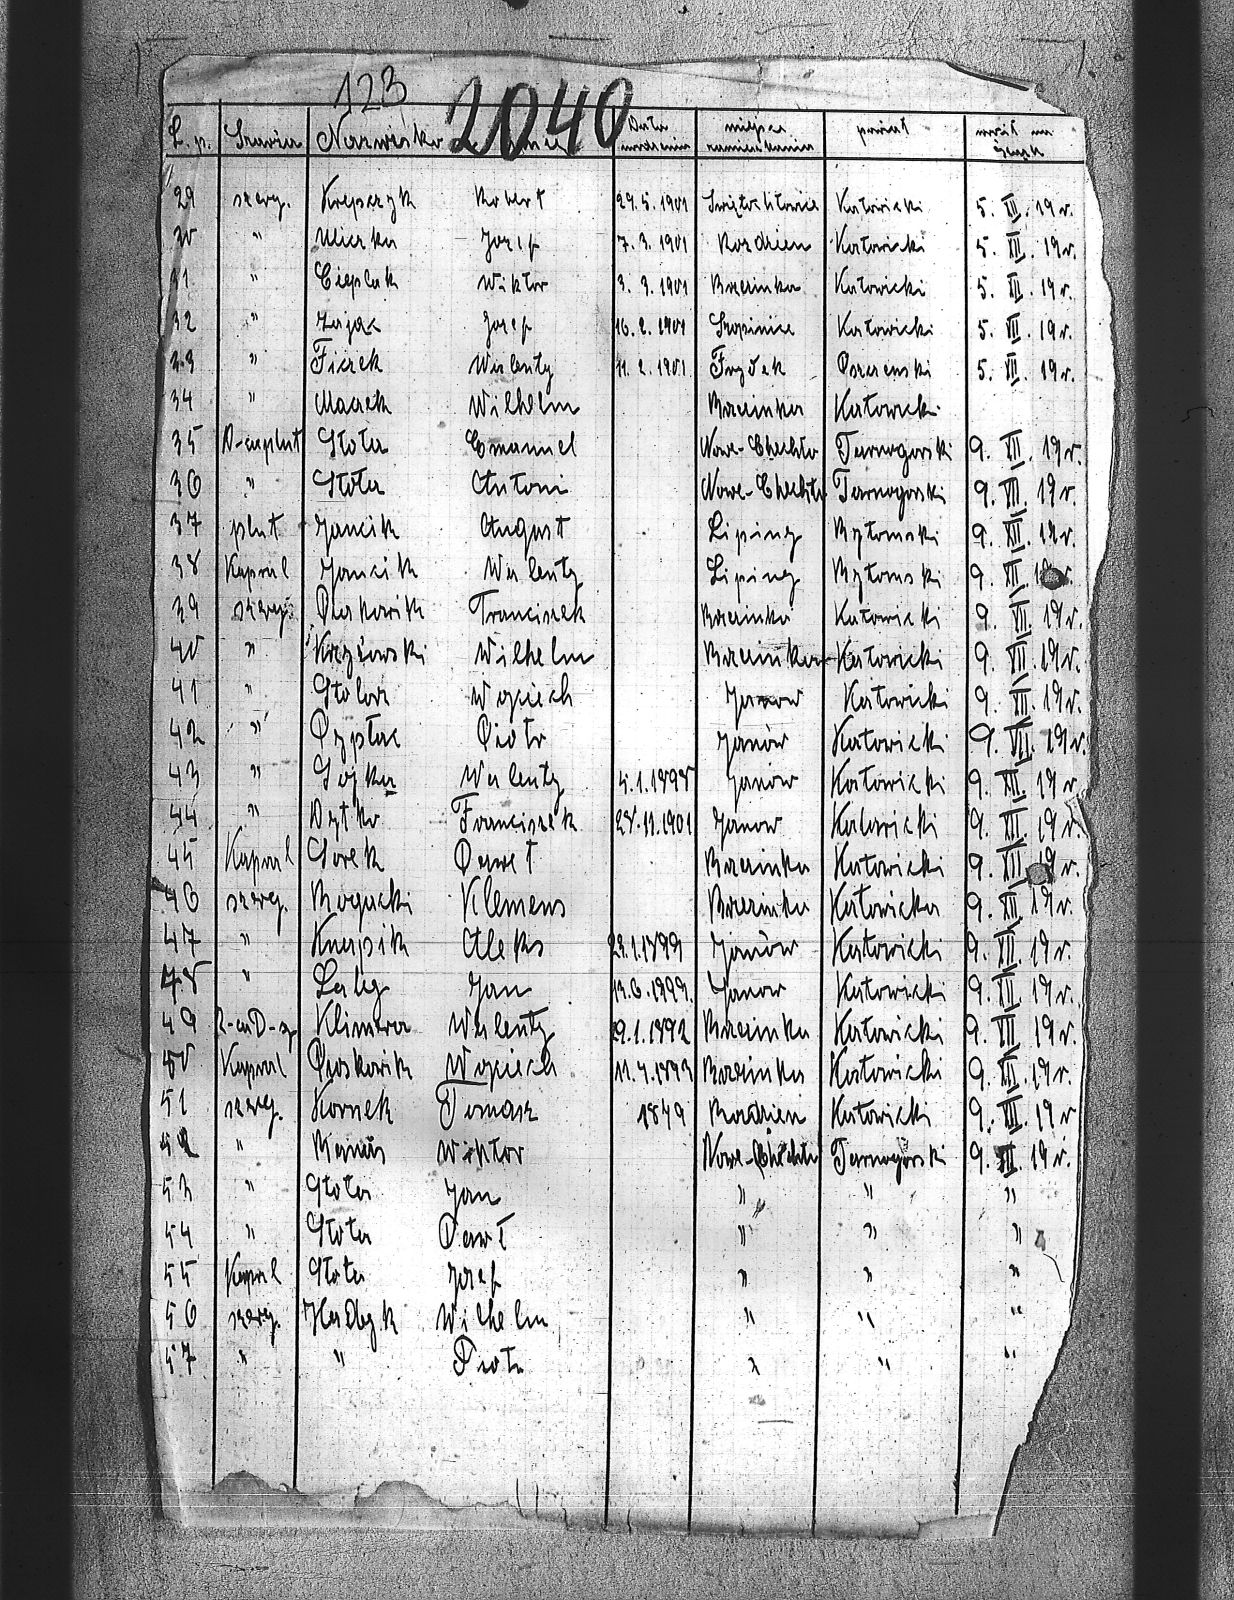 123 2040
L. p. Szarża Nazwisko Data urodzenia miejsce zamieszkania powiat wziął na
29 szereg. Krepczyk Robert 29.5.1901 Świętochłowice Katowicki 5. XII. 19 r.
30 " Uliczka Józef 7.3.1901 Rozdzien Katowicki 5. XII. 19 r.
31 " Cieplak Wiktor 3.3.1901 Brzezinka Katowicki 5. XII. 19 r.
32 " Zając Józef 16.2.1901 Szopinice Katowicki 5. XII. 19 r.
33 " Ficek Walenty 11.2.1901 Frydek Pszczenski 5. XII. 19 r.
34 " Maczek Wilhelm Brzezinka Katowicki
35 Głota Emanuel Nowe-Chechło Tarnogorski 9. XII. 19 r.
36 " Głota Antoni Nowe-Chechło Tarnogorski 9. XII. 19 r.
37 plut Jancik August Lipiny Bytomski 9. XII. 19 r.
38 Kapral Jancik Walenty Lipiny Bytomski 9. XII. 19 r.
39 szereg. Piaskowik Franciszek Brzezinka Katowicki 9. XII. 19 r.
40 " Krzyżowski Wilhelm Brzezinka Katowicki 9. XII. 19 r.
41 " Wojciech Janow Katowicki 9. XII. 19 r.
42 " Pyplac Piotr Janów Katowicki 9. XII. 19 r.
43 " Gojka Walenty 4.1.1898 Janów Katowicki 9. XII. 19 r.
44 " Dytko Franciszek 28.11.1901 Janow Katowicki 9. XII. 19 r.
45 Kapral Gorek Paweł Brzezinka Katowicki 9. XII. 19 r.
46 szereg. Bogacki Klemens Brzezinka Katowicka 9. XII. 19 r.
47 " Knapik Aleks 23.1.1899 Janów Katowicki 9. XII. 19 r.
48 " Jan 19.6.1999. Janow Katowicki 9. XII. 19 r.
49 Klimera Walenty 29.1.1892 Brzezinka Katowicki 9. XII. 19 r.
50 Kapral Piaskowik Wojciech 11.4.1893 Brzezinka Katowicki 9. XII. 19 r.
51 szereg. Kornek Tomasz 1849 Rozdzien Katowicki 9. XII. 19 r
52 " Wiktor Nowe-Chechło Tarnogórski 9. XII. 19 r.
53 " Głota Jan " " "
54 " Głota Paweł " " "
55 Kapral Głota Józef " " "
56 szereg. Hadzyk Wilhelm " " "
57 " " Piotr " " "